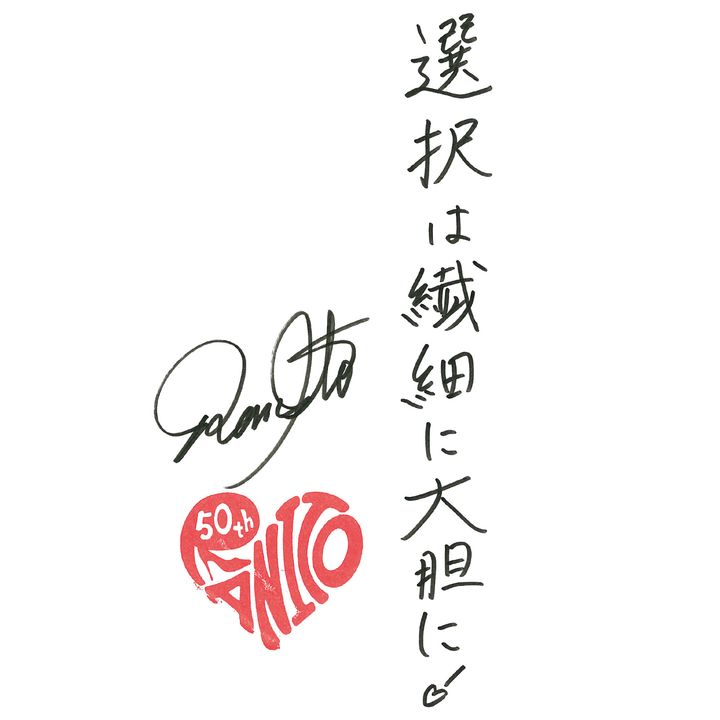 選択は繊細に大胆に
Ran Ito
50th
RAN ITO